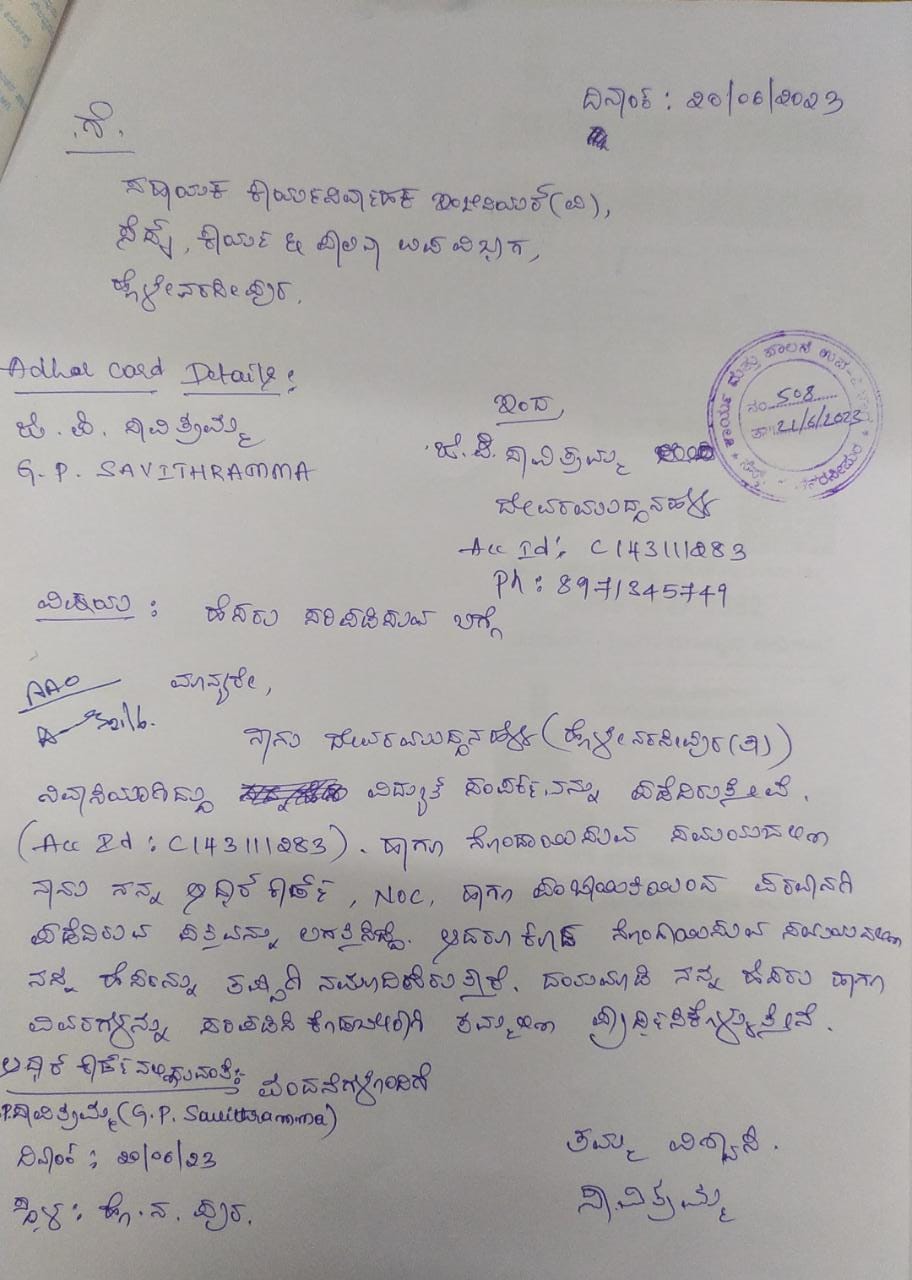 ದಿನಾಂಕ : 20/06/2023
ಗೆ.
ಸಹಾಯಕ ಕಾರ್ಯನಿರ್ವಾಹಕ ಇಂಜಿನಿಯರ್(ವಿ),
ಸೆಸ್ಕ್, ಕಾರ್ಯ & ಪಾಲನಾ ಉಪವಿಭಾಗ,
ಹೊಳೇನರಸೀಪುರ.
Adhar card Details :
ಜಿ. ಪಿ. ಸಾವಿತ್ರಮ್ಮ
G. P. SAVITHRAMMA
ಇಂದ,
ಜಿ. ಪಿ. ಸಾವಿತ್ರಮ್ಮ
ದೇವರಮುದ್ದನಹಳ್ಳಿ
Acc Id : C143111283
Ph : 8971345749
ಕಾರ್ಯ ಮತ್ತು ಪಾಲನೆ ಉಪ-
ನಂ. 508
ತಾ: 21/6/2023
ವಿಷಯ : ಹೆಸರು ಸರಿಪಡಿಸುವ ಬಗ್ಗೆ
AAO
ಮಾನ್ಯರೇ,
ನಾನು ದೇವರಮುದ್ದನಹಳ್ಳಿ (ಹೊಳೇನರಸೀಪುರ(ತಾ))
ನಿವಾಸಿಯಾಗಿದ್ದು ವಿದ್ಯುತ್ ಸಂಪರ್ಕವನ್ನು ಪಡೆದಿರುತ್ತೇವೆ.
(Acc Id : C143111283). ಹಾಗೂ ನೊಂದಾಯಿಸುವ ಸಮಯದಲ್ಲಿ
ನಾನು ನನ್ನ ಆಧಾರ್ ಕಾರ್ಡ್, NOC, ಹಾಗೂ ಪಂಚಾಯಿತಿಯಿಂದ ಪರವಾನಗಿ
ಪಡೆದಿರುವ ಪತ್ರವನ್ನು ಲಗತ್ತಿಸಿದ್ದೆ. ಆದರೂ ಕೂಡ ನೊಂದಾಯಿಸುವ ಸಮಯದಲ್ಲಿ
ನನ್ನ ಹೆಸರನ್ನು ತಪ್ಪಾಗಿ ನಮೂದಿಸಿರುತ್ತಾರೆ. ದಯಮಾಡಿ ನನ್ನ ಹೆಸರು ಹಾಗೂ
ವಿವರಗಳನ್ನು ಸರಿಪಡಿಸಿ ಕೊಡಬೇಕಾಗಿ ತಮ್ಮಲ್ಲಿ ಪ್ರಾರ್ಥಿಸಿಕೊಳ್ಳುತ್ತೇನೆ.
ಆಧಾರ್ ಕಾರ್ಡ್ ನಲ್ಲಿರುವಂತೆ:
ವಂದನೆಗಳೊಂದಿಗೆ
P. ಸಾವಿತ್ರಮ್ಮ (G. P. Savithramma)
ದಿನಾಂಕ : 20/06/23
ಸ್ಥಳ : ಹೊ. ನ. ಪುರ.
ತಮ್ಮ ವಿಶ್ವಾಸಿ.
ಸಾವಿತ್ರಮ್ಮ